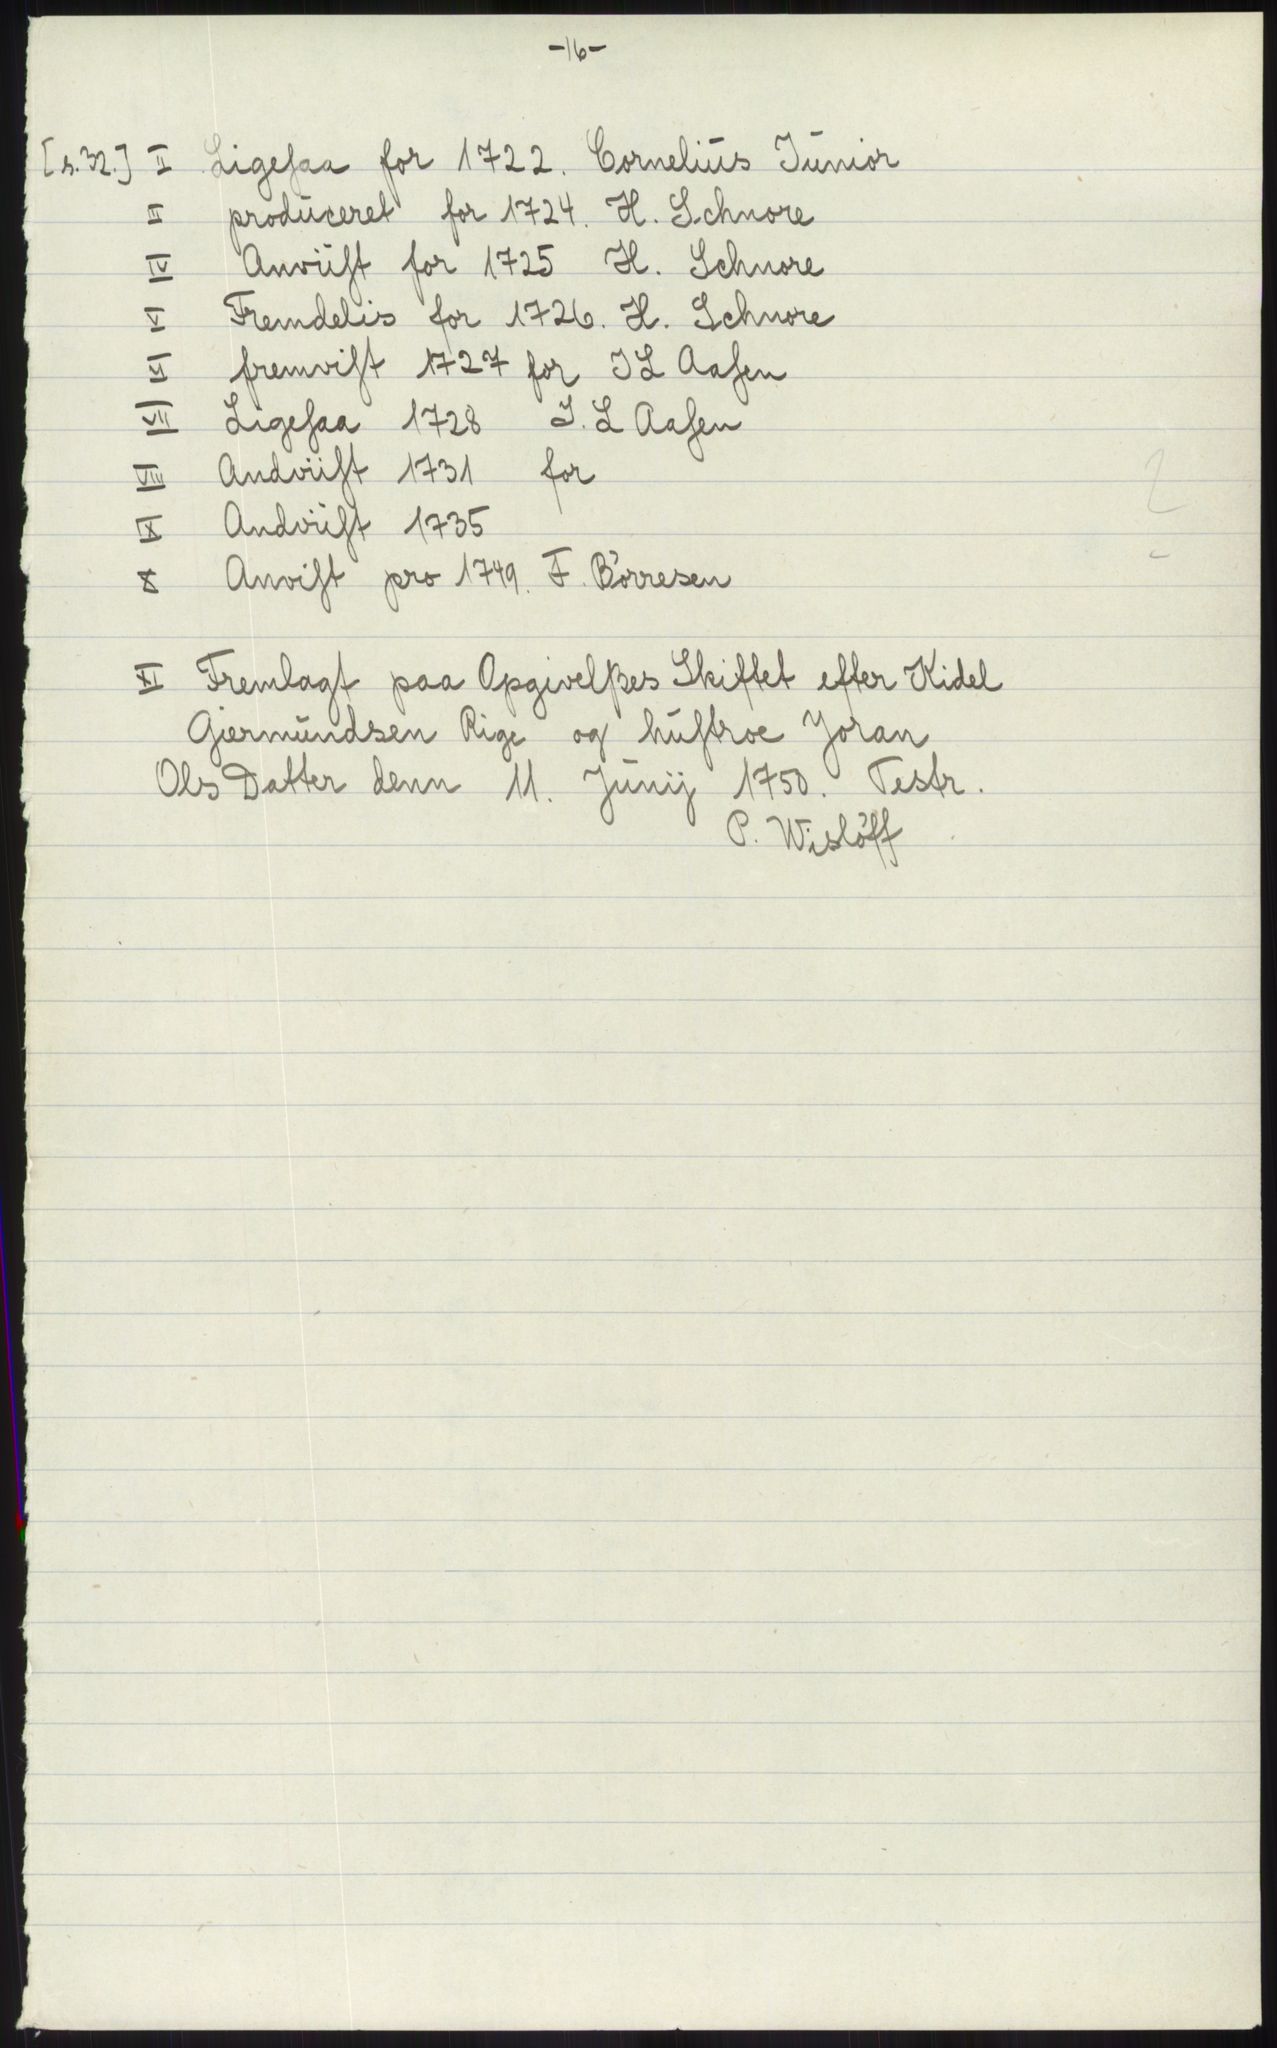 -16-
[s.32.] II Ligesaa for 1722. Cornelius Junior
III produceret for 1724. H. Schnore
IV Anviist for 1725 H. Schnore
V Fremdelis for 1726. H. Schnore
VI fremvist 1727 for I L Aasen
VII Ligesaa 1728 I. L Aasen
VIII Andviist 1731 for
IX Andviist 1735
X Anvist pro 1749. F. Börresen
XI Fremlagt paa Opgivelßes Skiftet efter Kidel
Giermundsen Rige og hustroe Joran
Ols Datter denn 11. Junij 1750. Testr.
P. Wislöff